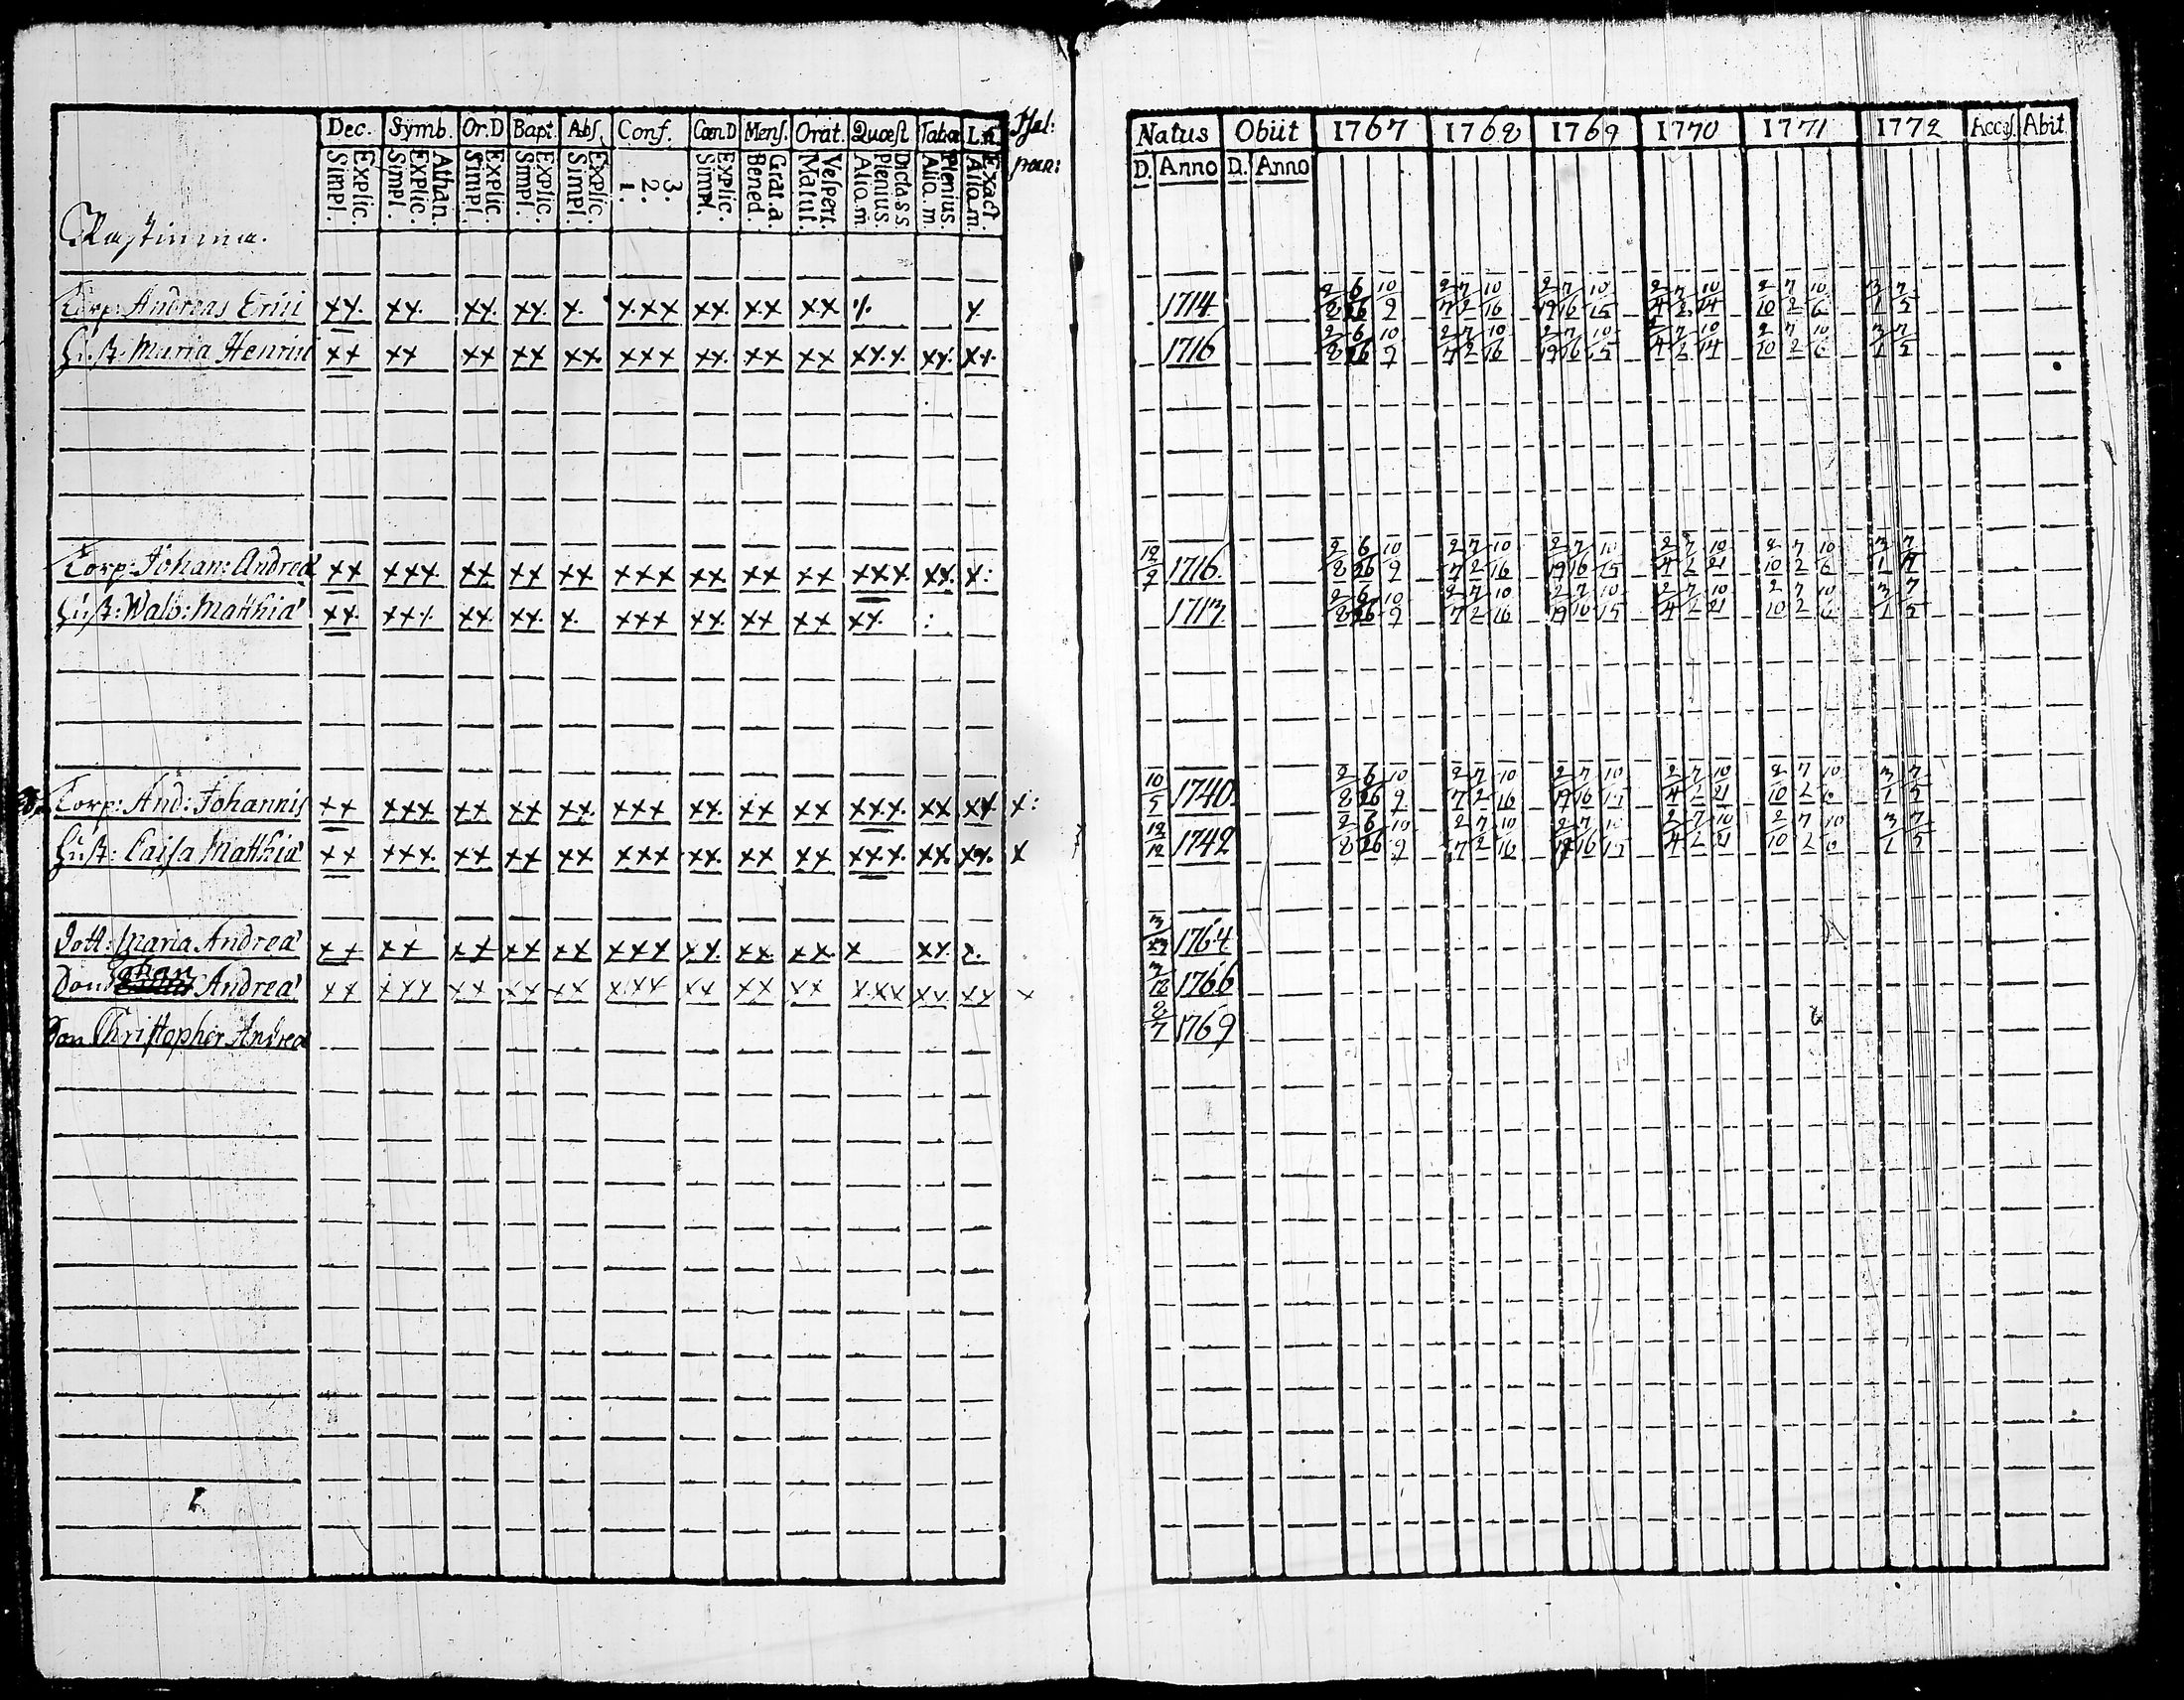 Dec. Symb. Or.D Bapt. Abs. Conf. Cœn.D Mens. Orat. Quæst Tabæ L.n. Psal:
pœn:
Explic. Simpl. Athan. Explic. Simpl. Explic. Simpl. Explic. Simpl. Explic. Simpl. 3. 2. 1. Explic. Simpl. Grat.a. Bened. Vespert. Matut. Dicta.s.s Plenius. Alia.m Plenius. Alia.m. Exact. Alia.m.
Natus Obiit 1767 1768 1769 1770 1771 1772 Access. Abit.
D. Anno D. Anno
Corp: Andreas Erici xx. xx. xx. xx. x. xxx xx xx xx x. x 1714 2/8 6/26 10/9 2/7 7/2 10/16 2/19 7/16 10/15 2/4 7/2 10/14 2/10 7/2 10/6 3/1 7/5
Hust: Maria Henrici xx xx xx xx xx. xxx xx. xx xx xxx xx. xx. 1716 2/8 6/26 10/9 2/7 7/2 10/16 2/19 7/16 10/15 2/4 7/2 10/14 2/10 7/2 10/6 3/1 7/5
Corp: Johan: Andreæ xx xxx xx xx xx xxx xx xx xx xxx xx. x: 12/2 1716. 2/8 6/26 10/9 2/7 7/2 10/16 2/19 7/16 10/15 2/4 7/2 10/21 2/10 7/2 10/6 3/1 7/5
Hust: Walb: Matthiæ xx. xxx. xx. xx. x. xxx xx. xx xx xx. : 1713 2/8 6/26 10/9 2/7 7/2 10/16 2/19 7/16 10/15 2/4 7/2 10/21 2/10 7/2 10/6 3/1 7/5
Corp: And: Johannis xx xxx xx xx xx. xxx xx. xx xx xxx. xx xx x: 10/5 1740. 2/8 6/26 10/9 2/7 7/2 10/16 2/19 7/16 10/15 2/4 7/2 10/21 2/10 7/2 10/6 3/1 7/5
Hust: Caisa Matthiæ xx xxx. xx xx xx xxx xx. xx xx xxx. xx. xx. x 12/12 1742 2/8 6/26 10/9 2/7 7/2 10/16 2/19 7/16 10/15 2/4 7/2 10/21 2/10 7/2 10/6 3/1 7/5
Dott: Maria Andreæ xx xx xx xx xx xxx xx. xx xx. x xx. x. 3/23 1764
Johan
Son Andreæ xx xxx xx xx xx xxx xx xx xx xxx xx. xx x 3/12 1766
Son Christopher Andreæ 8/7 1769